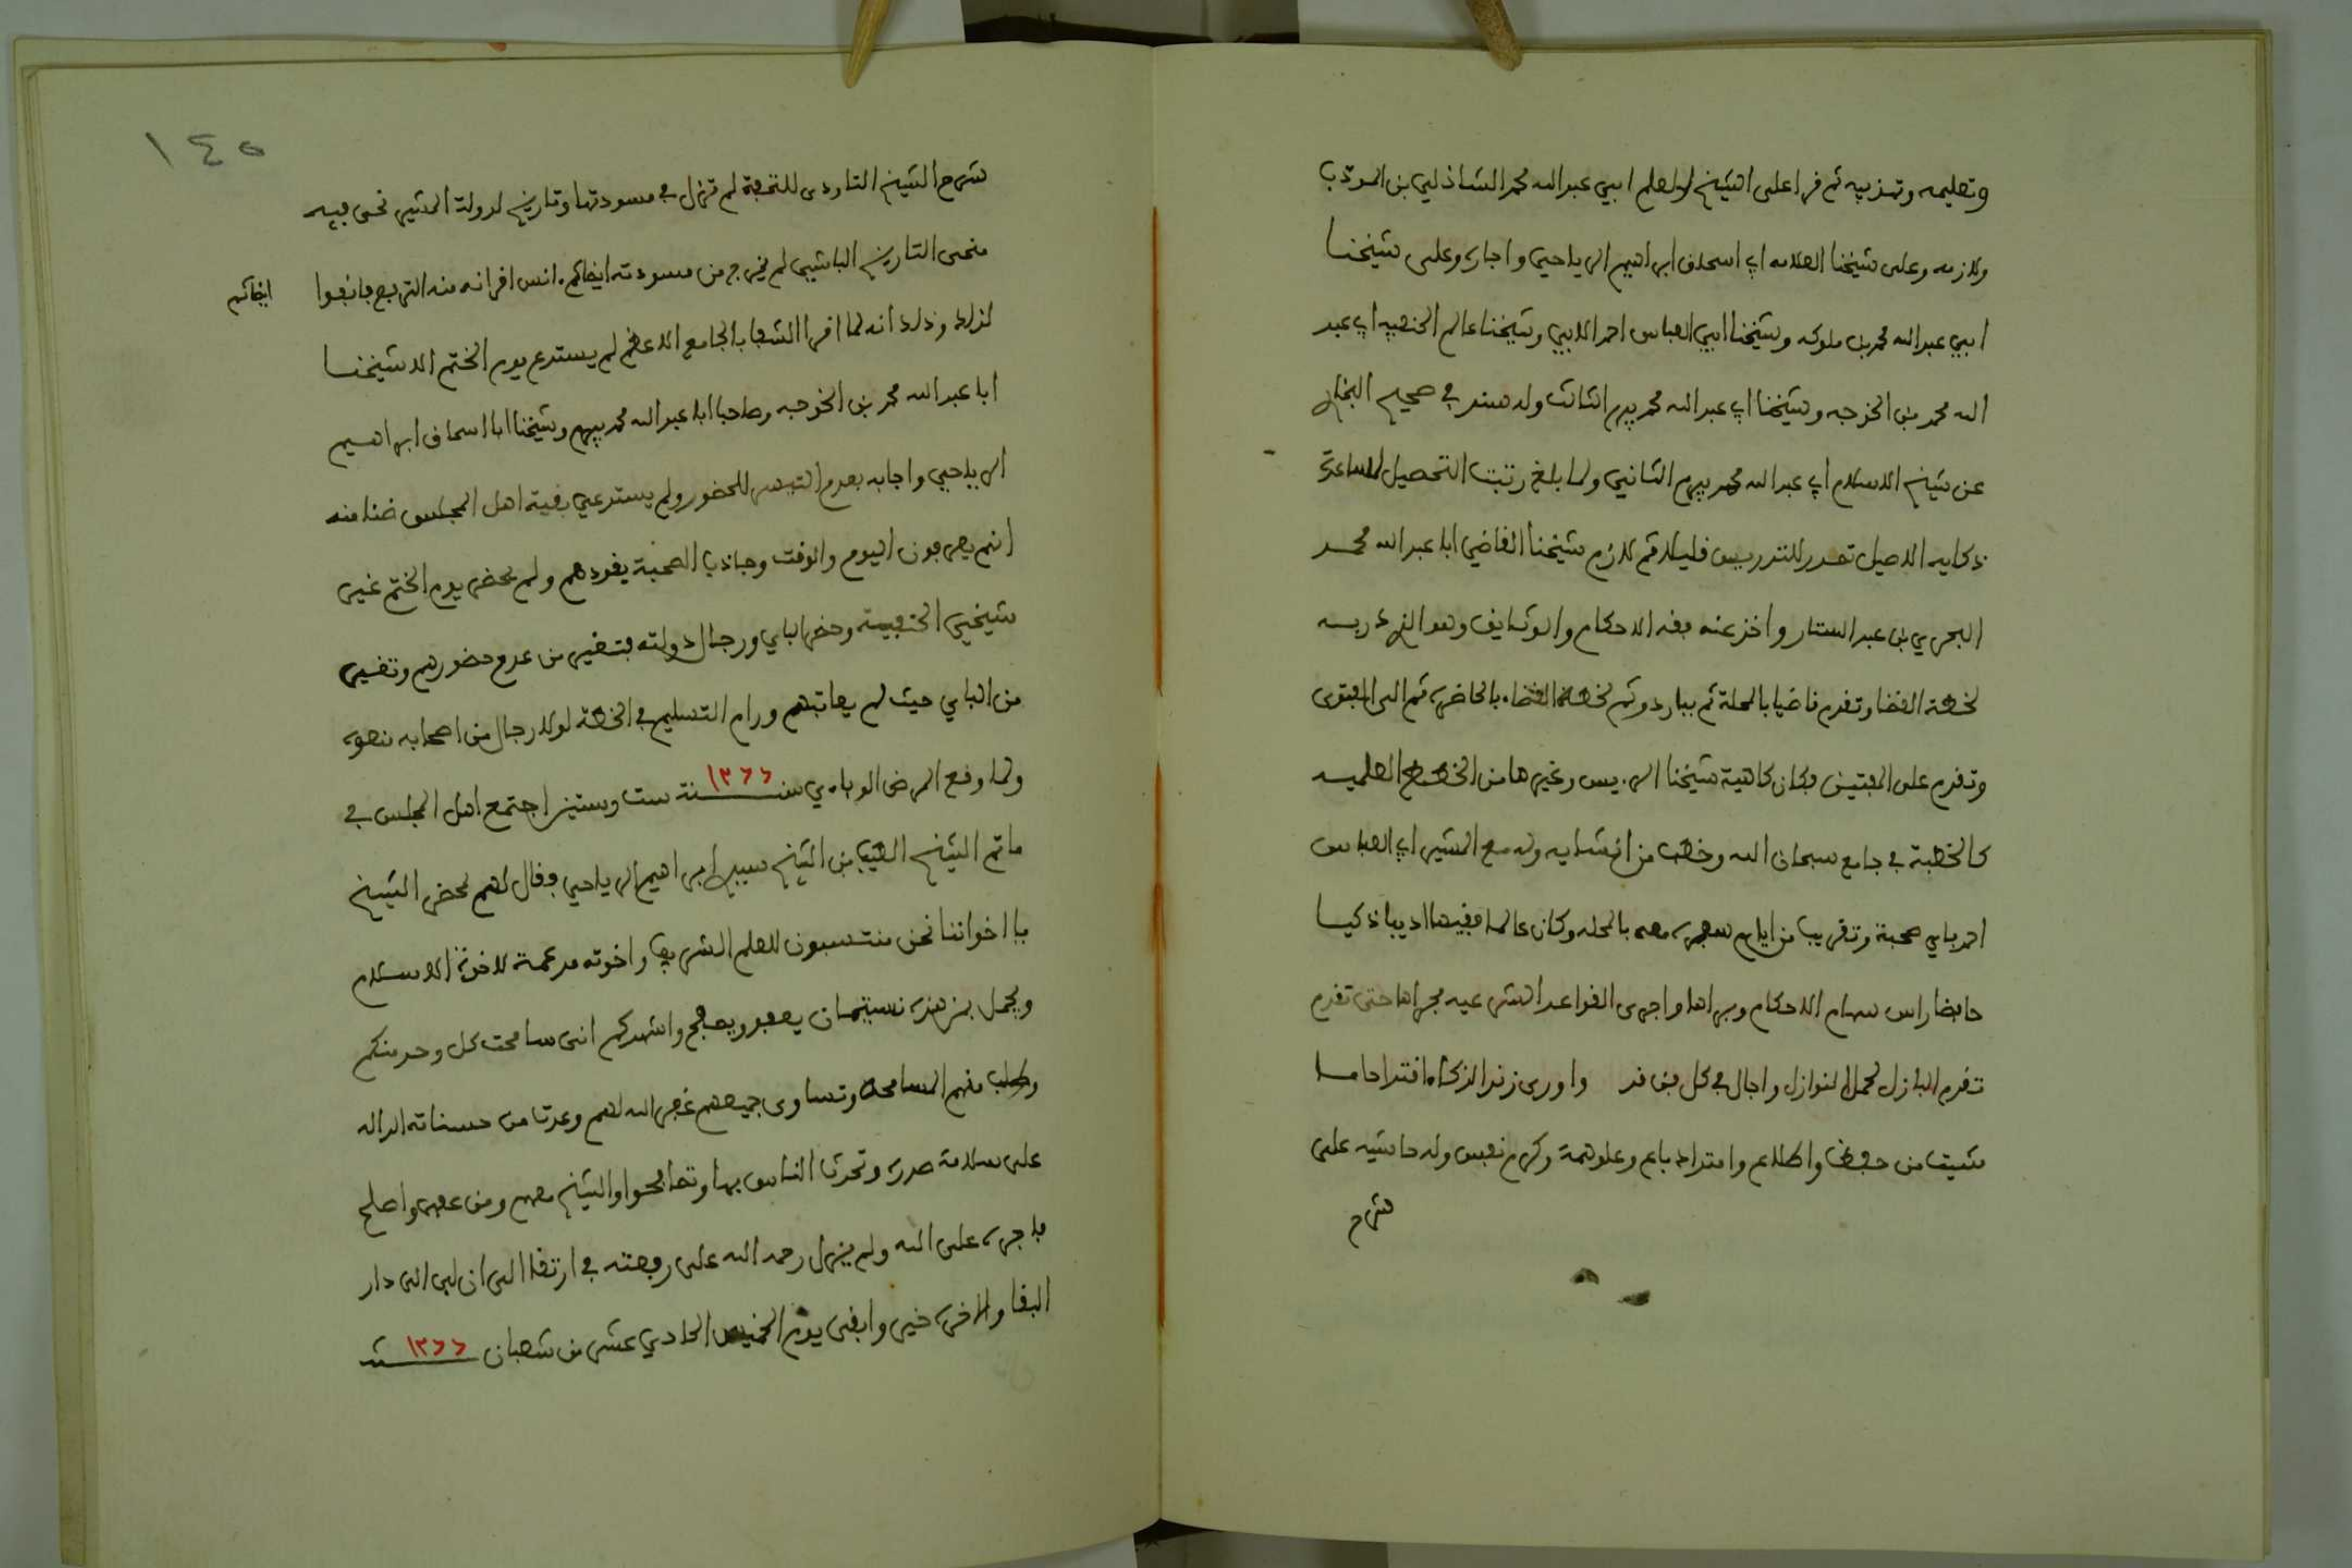 وتعليمه وتهذيبه ثم قرا على الشيخ المعلم ابي عبد الله محمد الشاذلي بن المودب
ولازمه وعلى شيخنا العلامه ابي اسحاق ابراهيم الرياحي واجازه وعلى شيخنا
ابي عبد الله محمد بن ملوكه وشيخنا ابي العباس احمد الابي وشيخنا عالم الحنفيه ابي عبد
الله محمد بن الخوجه وشيخنا ابي عبد الله محمد بيرم الثالث وله سند في صحيح البخاري
عن شيخ الاسلام ابي عبد الله محمد بيرم الثاني ولما بلغ رتبت التحصيل لمساعدة
ذكايه الاصيل تصدر للتدريس قليلا ثم لازم شيخنا القاضي ابا عبد الله محمد
البحري بن عبد الستار واخذ عنه فقه الاحكام والوثايق وهو الذي دربه
لخطة القضا وتقدم قاضيا بالمحلة ثم بباردو ثم لخطة القضاء بالحاضرة ثم الى الفتوى
وتقدم على المفتيين فكان كاهية شيخنا الرييس وغيرها من الخطط العلميه
كالخطبة في جامع سبحان الله وخطب من انشايه وله مع المشير ابي العباس
احمد باي صحبة وتقريب من ايام سفره معه بالمحله وكان عالما فقيها اديبا ذكيا
حافظا راس سهام الاحكام وبراها واجرى القواعد الشرعيه مجراها حتى تقدم
تقدم البازل لحمل النوازل واجال في كل فن قد واورى زند الذكاء اقتداحا ما
شيت من حفظ واطلاع وامتداد باع وعلو همة وكرم نفس وله حاشيه على
شرح
١٤٥
شرح الشيخ التاودي للتحفة لم تزل في مسودتها وتاريخ لدولة المشير نحى فيه
منحى التاريخ الباشي لم يخرج من مسودته ايضا ثم انس اقرانه منه الترفع فانفوا
ايضا ثم
لذلك وذلك انه لما اقرا الشفا بالجامع الاعظم لم يستدع يوم الختم الا شيخنا
ابا عبد الله محمد بن الخوجه وصاحبنا ابا عبد الله محمد بيرم وشيخنا ابا اسحاق ابراهيم
الرياحي واجابه بعدم التيسر للحضور ولم يستدعي بقية اهل المجلس ظنا منه
انهم يعرفون اليوم والوقت وجاذب الصحبة يقودهم ولم يحضر يوم الختم غير
شيخي الحنفية وحضر الباي ورجال دولته فتغير من عدم حضورهم وتغير
من الباي حيث لم يعاتبهم ورام التسليم في الخطة لولا رجال من اصحابه نصحوه
ولما وقع المرض الوباءي سنة ١٢٦٦ ست وستين اجتمع اهل المجلس في
ماتم الشيخ الطيب بن الشيخ سيدي ابراهيم الرياحي وقال لهم بمحضر الشيخ
يا اخواننا نحن منتسبون للعلم الشريف واخوته مدعمة لاخوة الاسلام
ويجمل بمن هذه نسبته ان يعفو ويصفح واشهدكم انى سامحت كل وحد منكم
وطلب منهم المسامحة وتساوى جميعهم غفر الله لهم وعدت من حسناته الداله
على سلامة صدره وتحدث الناس بها وتصافحوا والشيخ معهم ومن عفى واصلح
فاجره على الله ولم يزل رحمه الله على رفعته في ارتقا الى ان لبى الى دار
البقا والاخرة خير وابقى يوم الخميس الحادي عشر من شعبان سنة ١٢٦٦